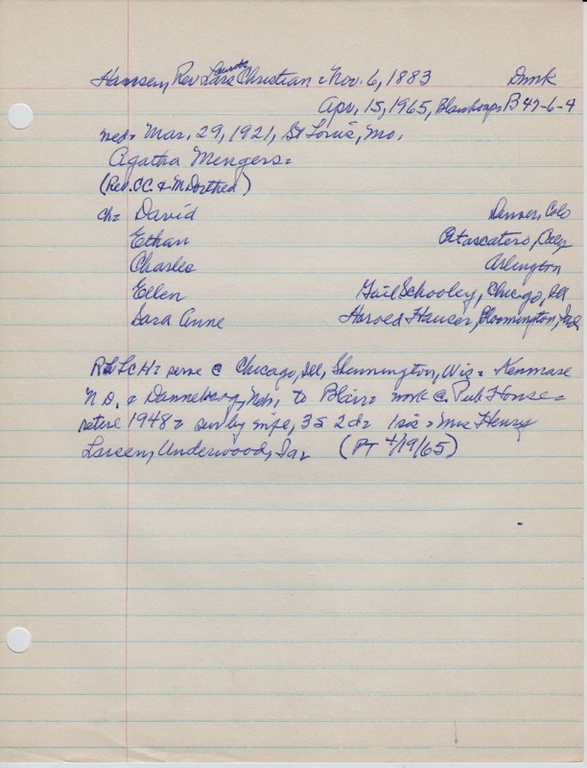 Hansen, Rev Lars Christian = Nov. 6, 1883 Dmk
Apr. 15, 1965, Blairhosp B 47-6-4
med= Mar. 29, 1921, St Louis, Mo.
Agatha Mengers=
(Rev. CC & M Dorthea)
ch= David Denver, Colo
Ethan Atascatero, Calif
Charles Arlington
Ellen Gail Schooley, Chicago, Ill
Sara Anne Harold Hauser, Bloomington, Ind
Rev LCH= serve @ Chicago, Ill, Shennington, Wis = Kenmare
N D. & Dannebrog, Neb, to Blair= work @ Pub House=
retire 1948= surv by wife, 3s 2d= 1 sis = Mrs Henry
Larsen, Underwood, Ia, (PT 4/19/65)